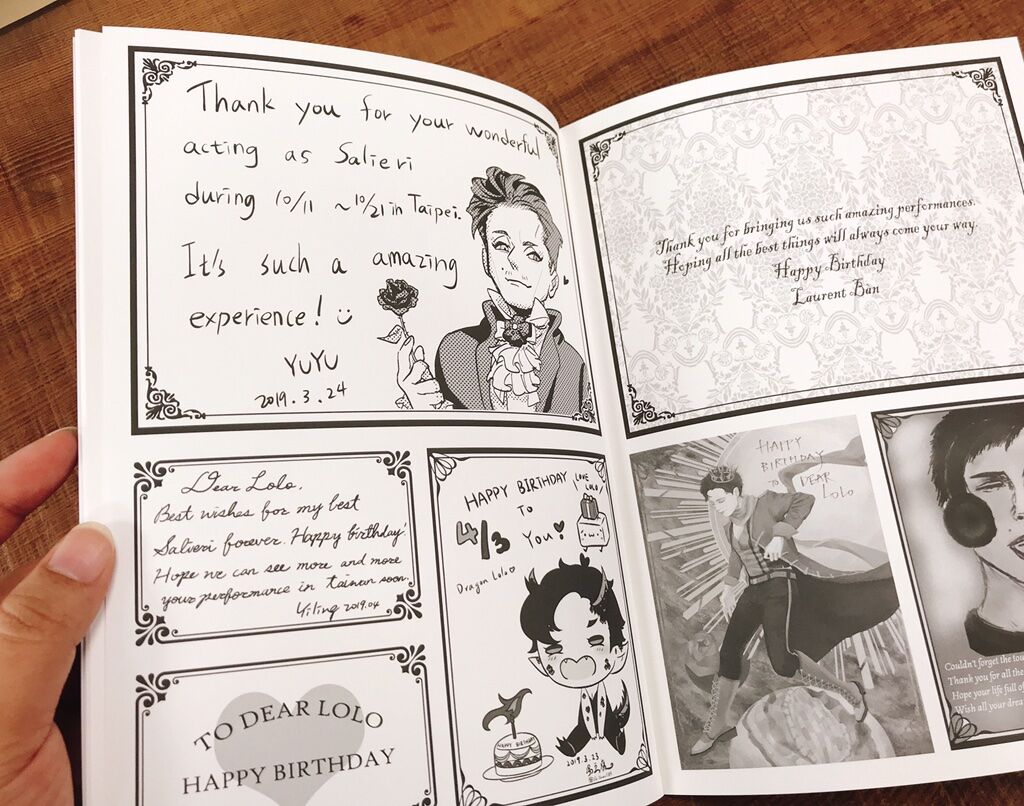 Thank you for your wonderful
acting as Salieri
during 10/11 ~10/21 in Taipei.
It's such a amazing
experience!
YUYU
2019.3.24
Dear Lolo,
Best wishes for my best
Salieri forever. Happy birthday!
Hope we can see more and more
your performance in taiwan soon.
Yiling 2019.04
TO DEAR LOLO
HAPPY BIRTHDAY
HAPPY BIRTHDAY
LOVE
LOLO
TO
4/3 YOU!
Dragon Lolo
HAPPY BIRTHDAY
2019.3.23
Thank you for bringing us such amazing performances.
Hoping all the best things will always come your way.
Happy Birthday
Laurent Bàn
HAPPY
BIRTHDAY
TO DEAR
LOLO
Couldn't forget the
Thank you for all the
Hope your life full of
Wish all your